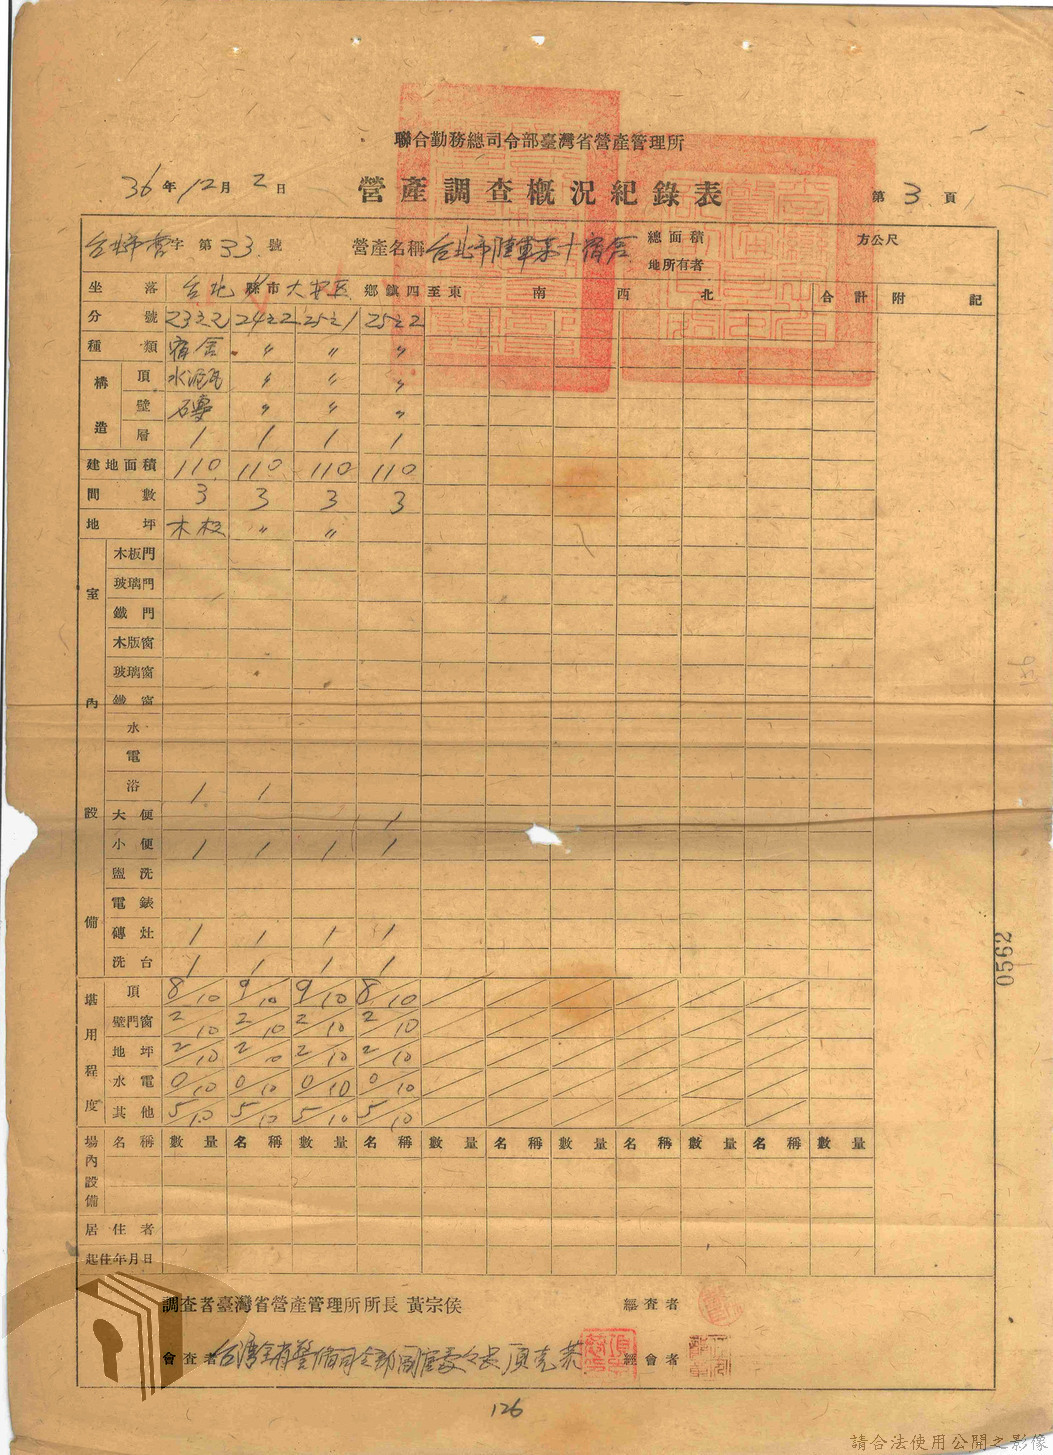 聯合勤務總司令部臺灣省營產管理所
36年12月2日 營產調查概況紀錄表 第3頁
台北市營字第33號 營產名稱 台北市陸軍第十宿舍 總面積 方公尺
地所有者
坐落 台北縣市大安区鄉鎮四至東 南 西 北 合計 附記
分號 23之2 24之2 25之1 25之2
種類 宿舍 〃 〃 〃
構造 頂 水泥瓦 〃 〃 〃
壁 石專 〃 〃 〃
層 1 1 1 1
建地面積 110 110 110 110
間數 3 3 3 3
地坪 木板 〃 〃
室內設備 木板門
玻璃門
鐵門
木版窗
玻璃窗
鐵窗
水
電
浴 1 1
大便 1
小便 1 1 1 1
盥洗
電錶
磚灶 1 1 1 1
洗台 1 1 1 1
堪用程度 頂 8/10 9/10 9/10 8/10
壁門窗 2/10 2/10 2/10 2/10
地坪 2/10 2/10 2/10 2/10
水電 0/10 0/10 0/10 0/10
其他 5/10 5/10 5/10 5/10
場內設備 名稱 數量 名稱 數量 名稱 數量 名稱 數量 名稱 數量 名稱 數量
居住者
起住年月日
調查者臺灣省營產管理所所長 黃宗俟 經查者
會查者 台灣全省警備司令部 經會者
126
0562
請合法使用公開之影像